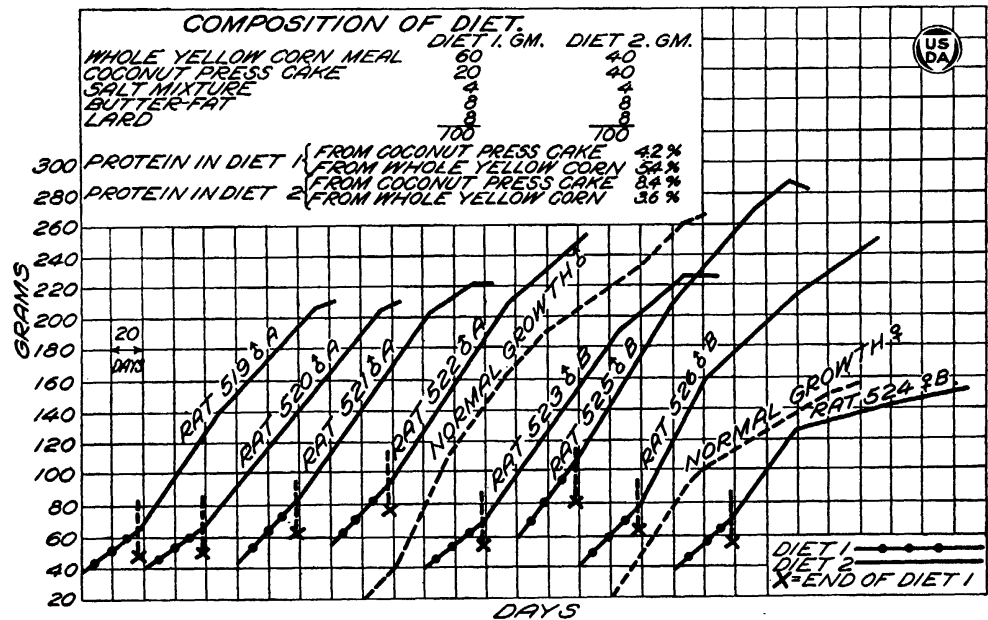 COMPOSITION OF DIET.
DIET 1. GM. DIET 2. GM.
WHOLE YELLOW CORN MEAL 60 40
COCONUT PRESS CAKE 20 40
SALT MIXTURE 4 4
BUTTER-FAT 8 8
LARD 8 8
100 100
PROTEIN IN DIET 1 { FROM COCONUT PRESS CAKE 4.2 %
FROM WHOLE YELLOW CORN 5.4 %
PROTEIN IN DIET 2 { FROM COCONUT PRESS CAKE 8.4 %
FROM WHOLE YELLOW CORN 3.6 %
US
DA
300
280
260
240
220
200
180
160
140
120
100
80
60
40
20
GRAMS
20
DAYS
RAT 519 ♂ A
RAT 520 ♂ A
RAT 521 ♂ A
RAT 522 ♂ A
NORMAL GROWTH ♂
RAT 523 ♂ B
RAT 525 ♂ B
RAT 526 ♂ B
NORMAL GROWTH ♀
RAT 524 ♀ B
DIET 1
DIET 2
X=END OF DIET 1
DAYS